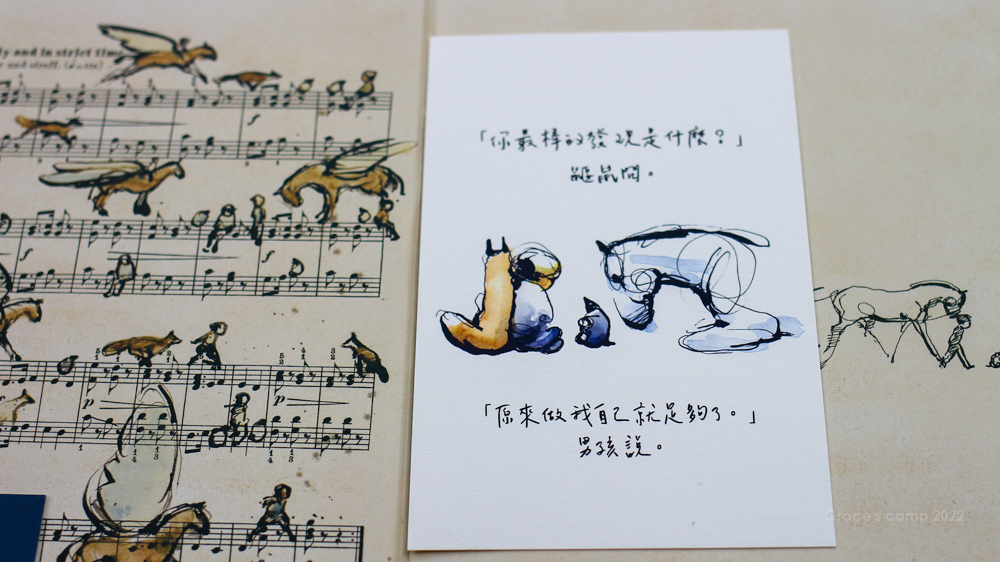 ly and in strict time
and stroff.
「你最棒的發現是什麼？」
鼴鼠問。
「原來做我自己就足夠了。」
男孩說。
Grace's camp 2022